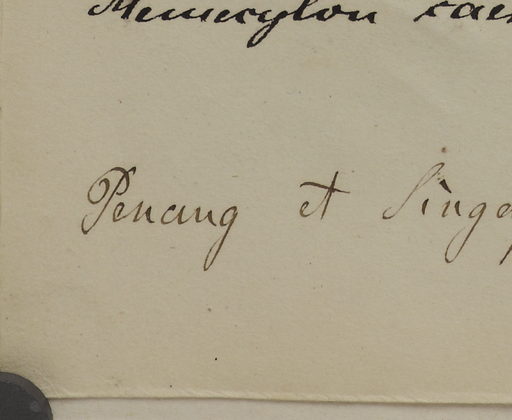 Memecylon cae
Penang et Singa